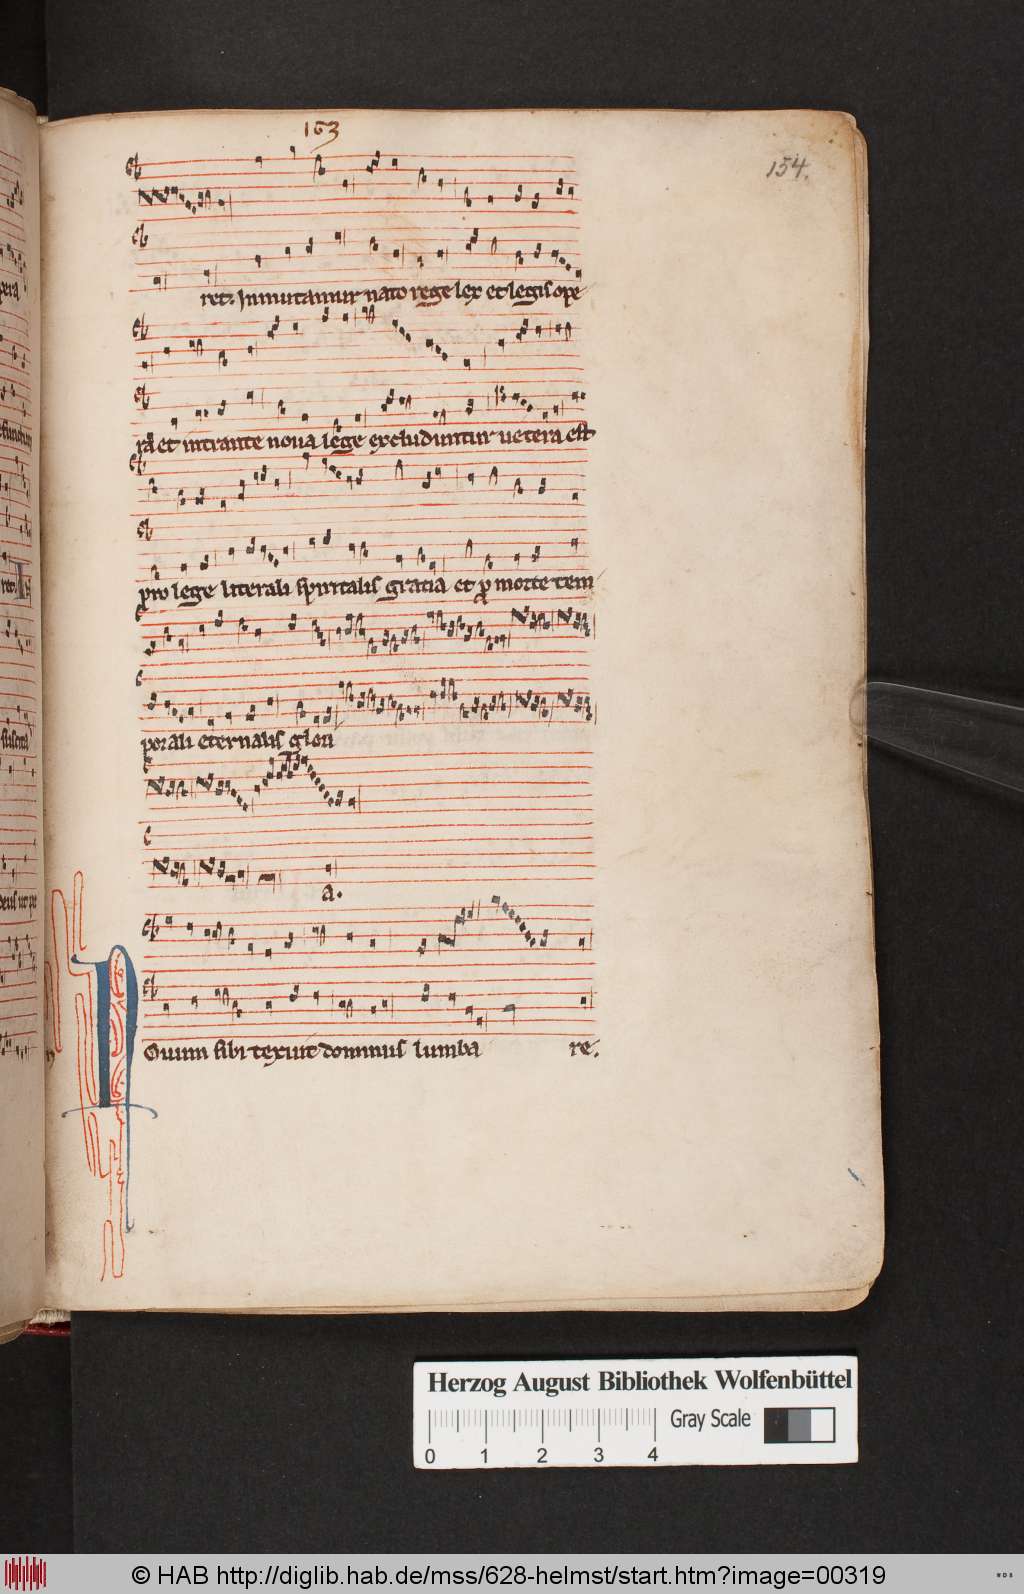 163
154.
ret. Inmutantur nato rege lex et legis ope
ra et intrante noua lege excluduntur uetera est
pro lege literali spiritalis gratia et p morte tem
porali eternalis glori
a.
Nouum sibi texuit dominus lumba re.
Herzog August Bibliothek Wolfenbüttel
Gray Scale
0 1 2 3 4
© HAB http://diglib.hab.de/mss/628-helmst/start.htm?image=00319